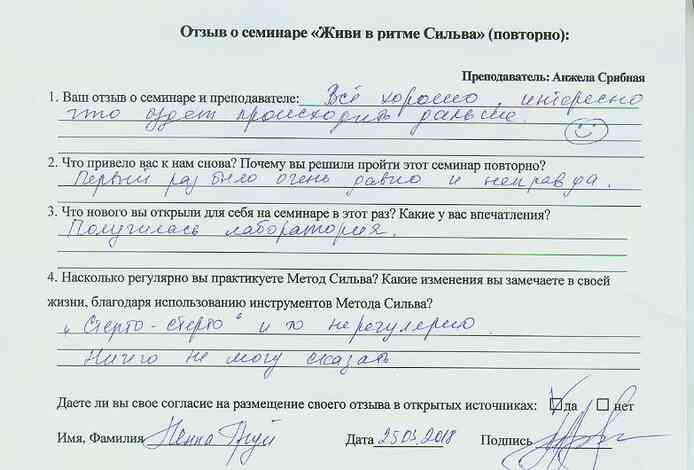 Отзыв о семинаре «Живи в ритме Сильва» (повторно):
Преподаватель: Анжела Срибная
1. Ваш отзыв о семинаре и преподавателе: Всё хорошо, интересно
что будет происходить дальше.
2. Что привело вас к нам снова? Почему вы решили пройти этот семинар повторно?
Первый раз было очень давно и неправда.
3. Что нового вы открыли для себя на семинаре в этот раз? Какие у вас впечатления?
Получилась лаборатория.
4. Насколько регулярно вы практикуете Метод Сильва? Какие изменения вы замечаете в своей
жизни, благодаря использованию инструментов Метода Сильва?
„Стерто-стерто“ и то нерегулерно
Ничго не могу сказать
Даете ли вы свое согласие на размещение своего отзыва в открытых источниках: да нет
Имя, Фамилия Дата 25.03.2018 Подпись